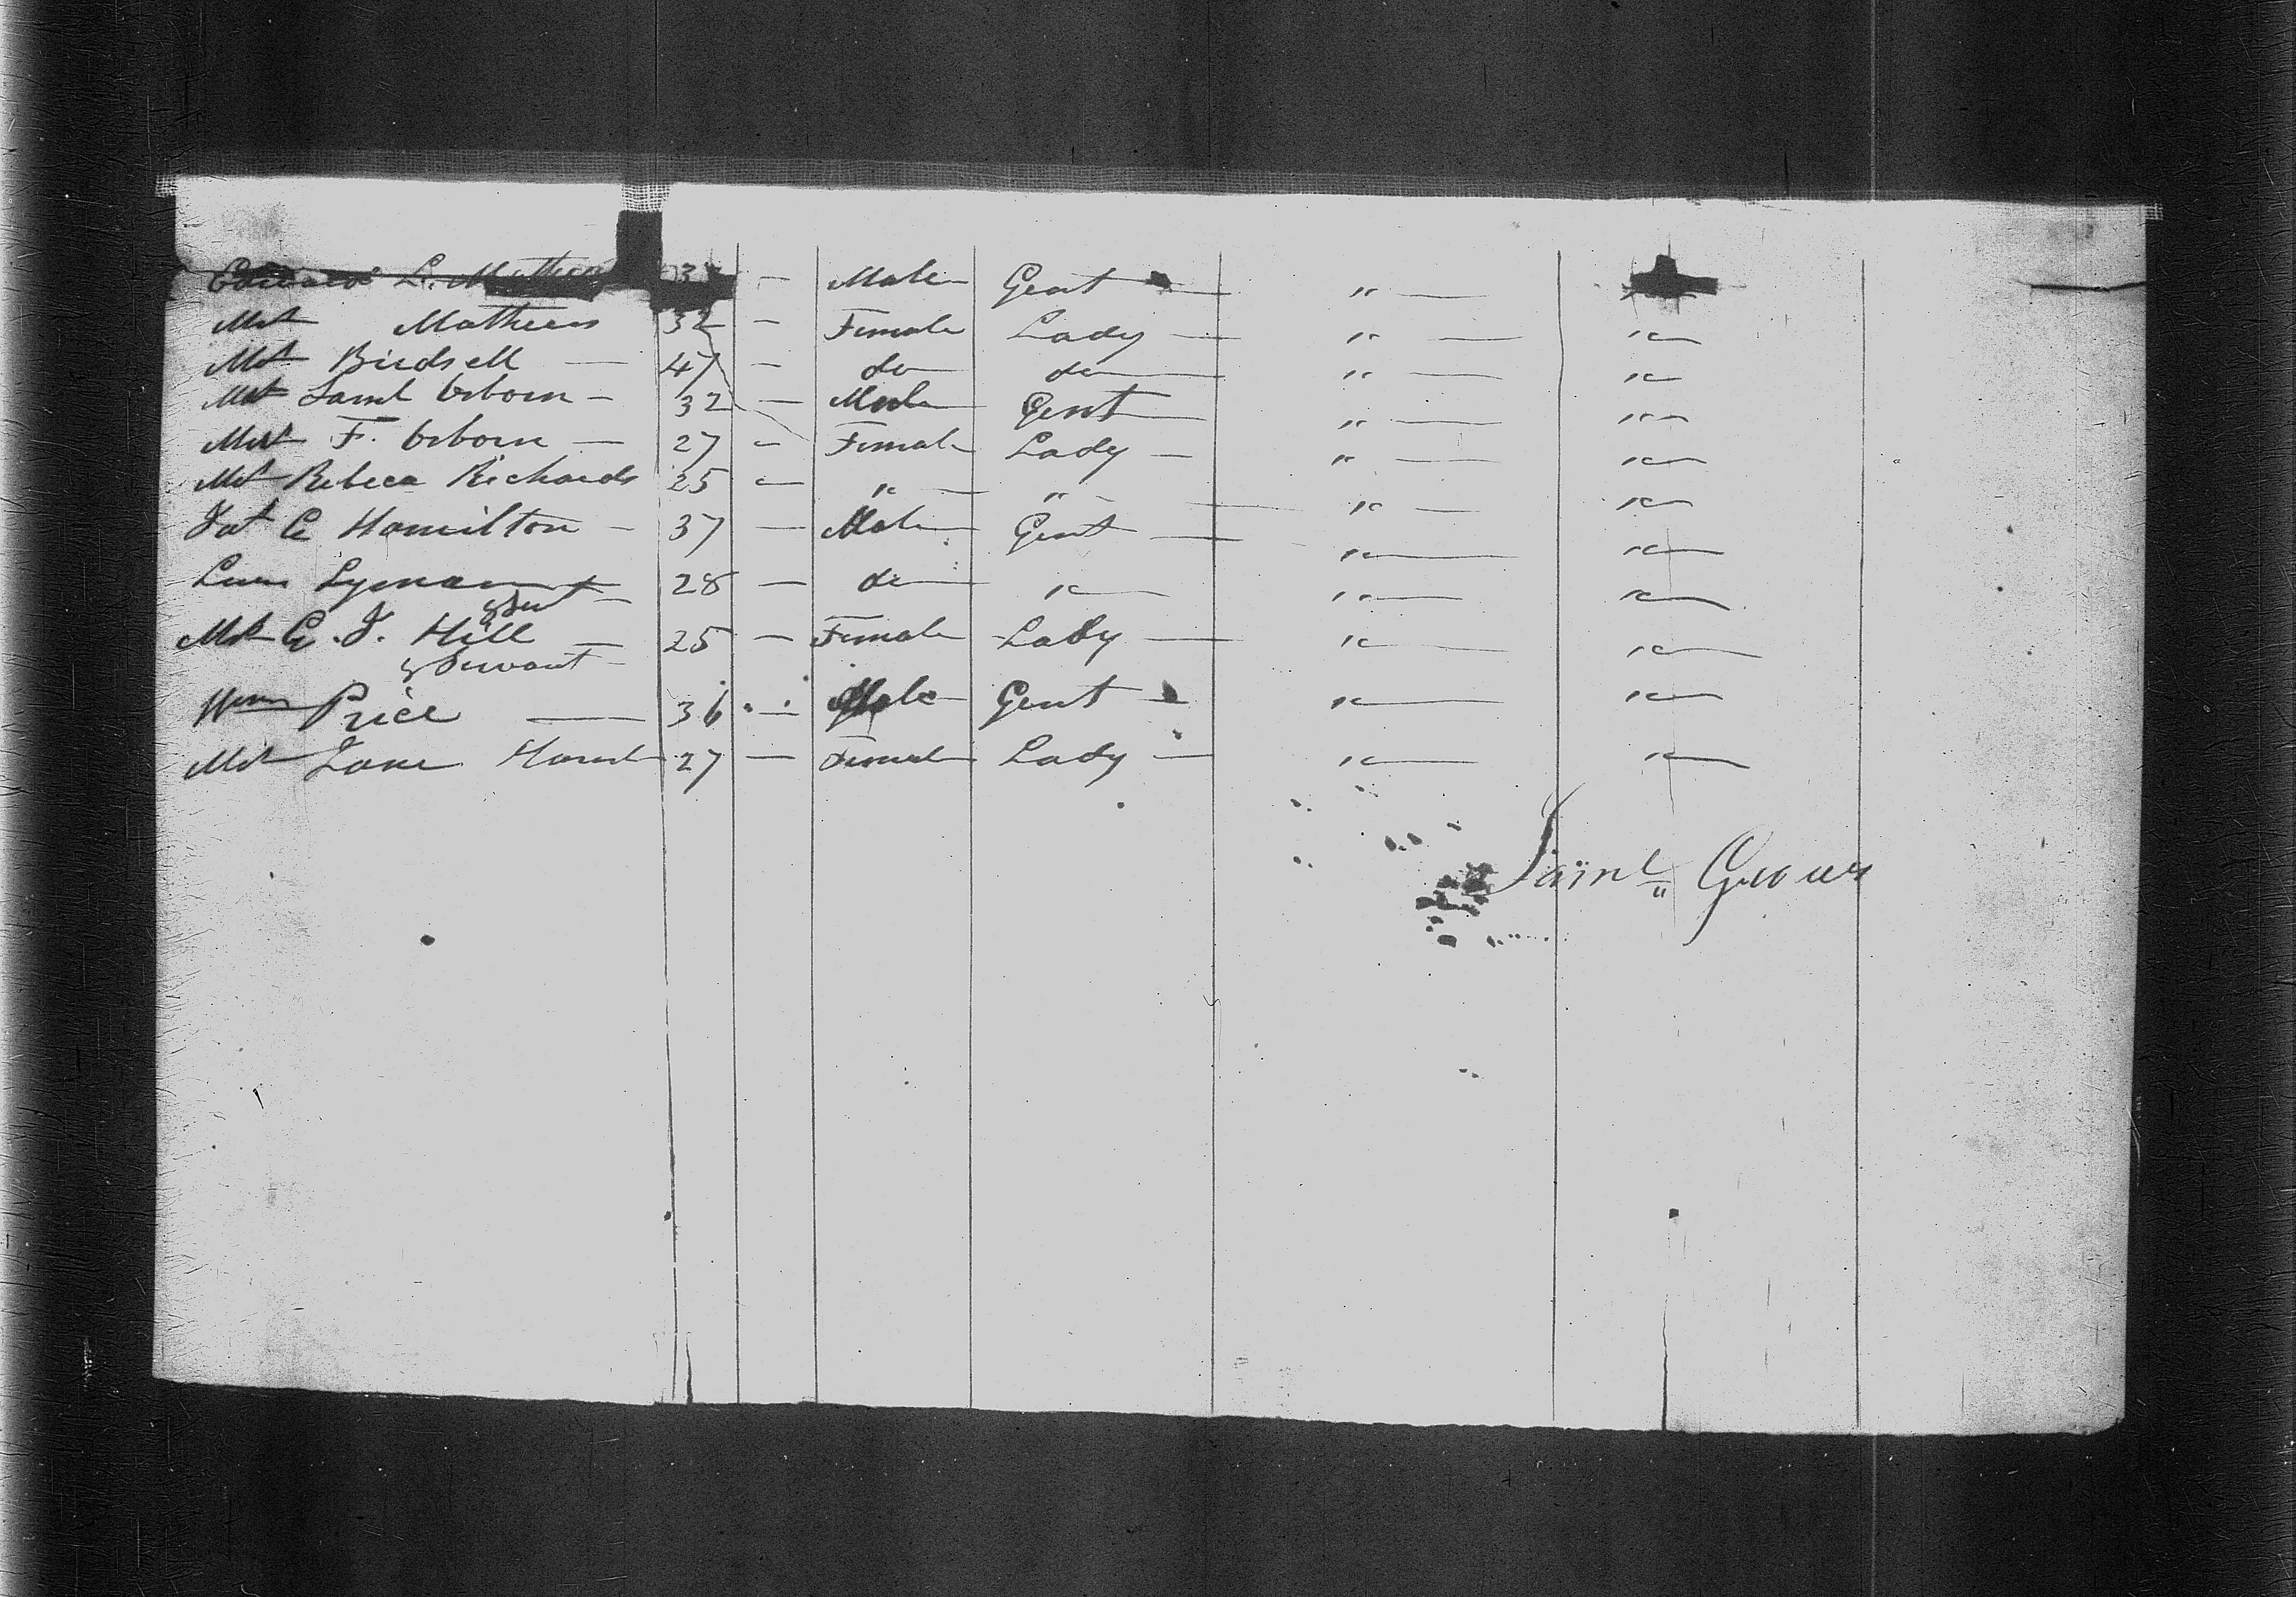 Edward L. Mathews 3 — Male Gent — " — "
Mrs Mathews 32 — Female Lady — " — " —
Mrs Birdsell — 47 — do do — " — " —
Mr Saml Osborn — 32 — Male Gent — " — " —
Mrs F. Osborn — 27 — Female Lady — " — " —
Mrs Rebeca Richards 25 — " — " — " — " —
Jas C Hamilton — 37 — Male Gent — " — " —
Lyman 28 — do " — " — " —
& Sert —
Mrs G. J. Hill — 25 — Female Lady — " — " —
& Servant —
Wm Price — 36 — Male Gent — " — " —
Mrs Jane 27 — Female Lady — " — " —
Saml Graves